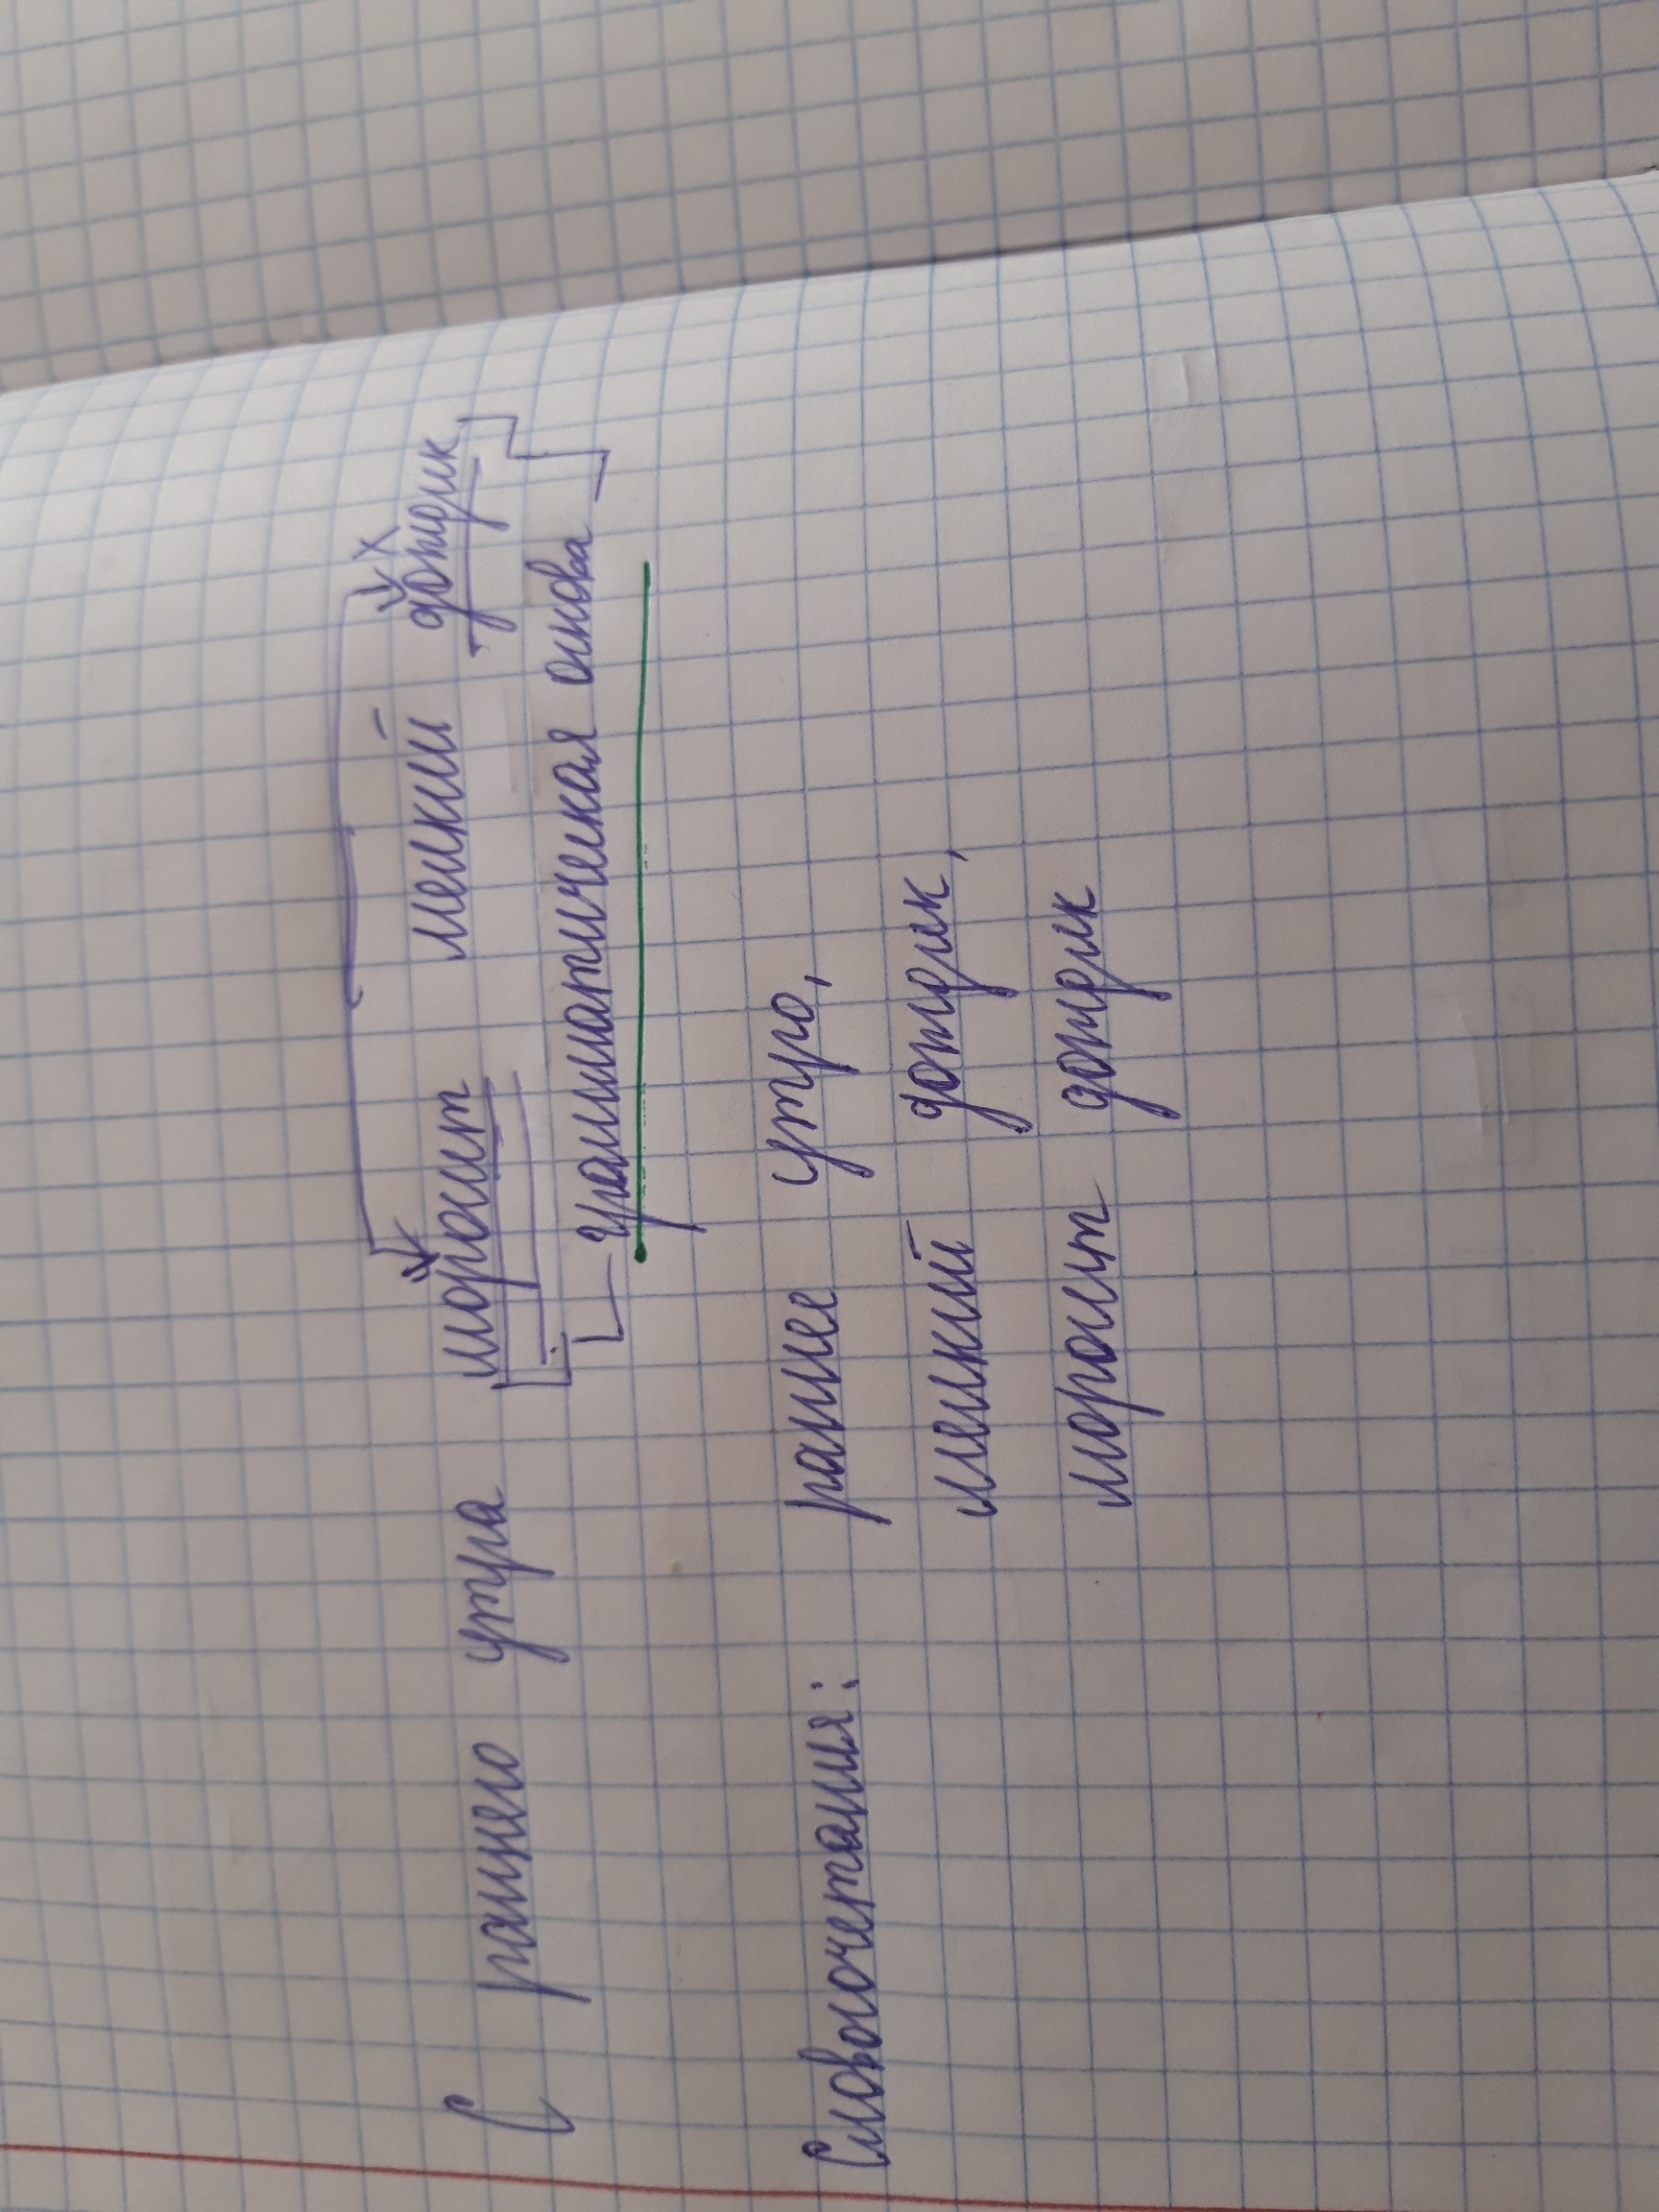 С раннего утра моросит мелкий дождик
х
грамматическая основа
Словосочетания: раннее утро,
мелкий дождик,
моросит дождик